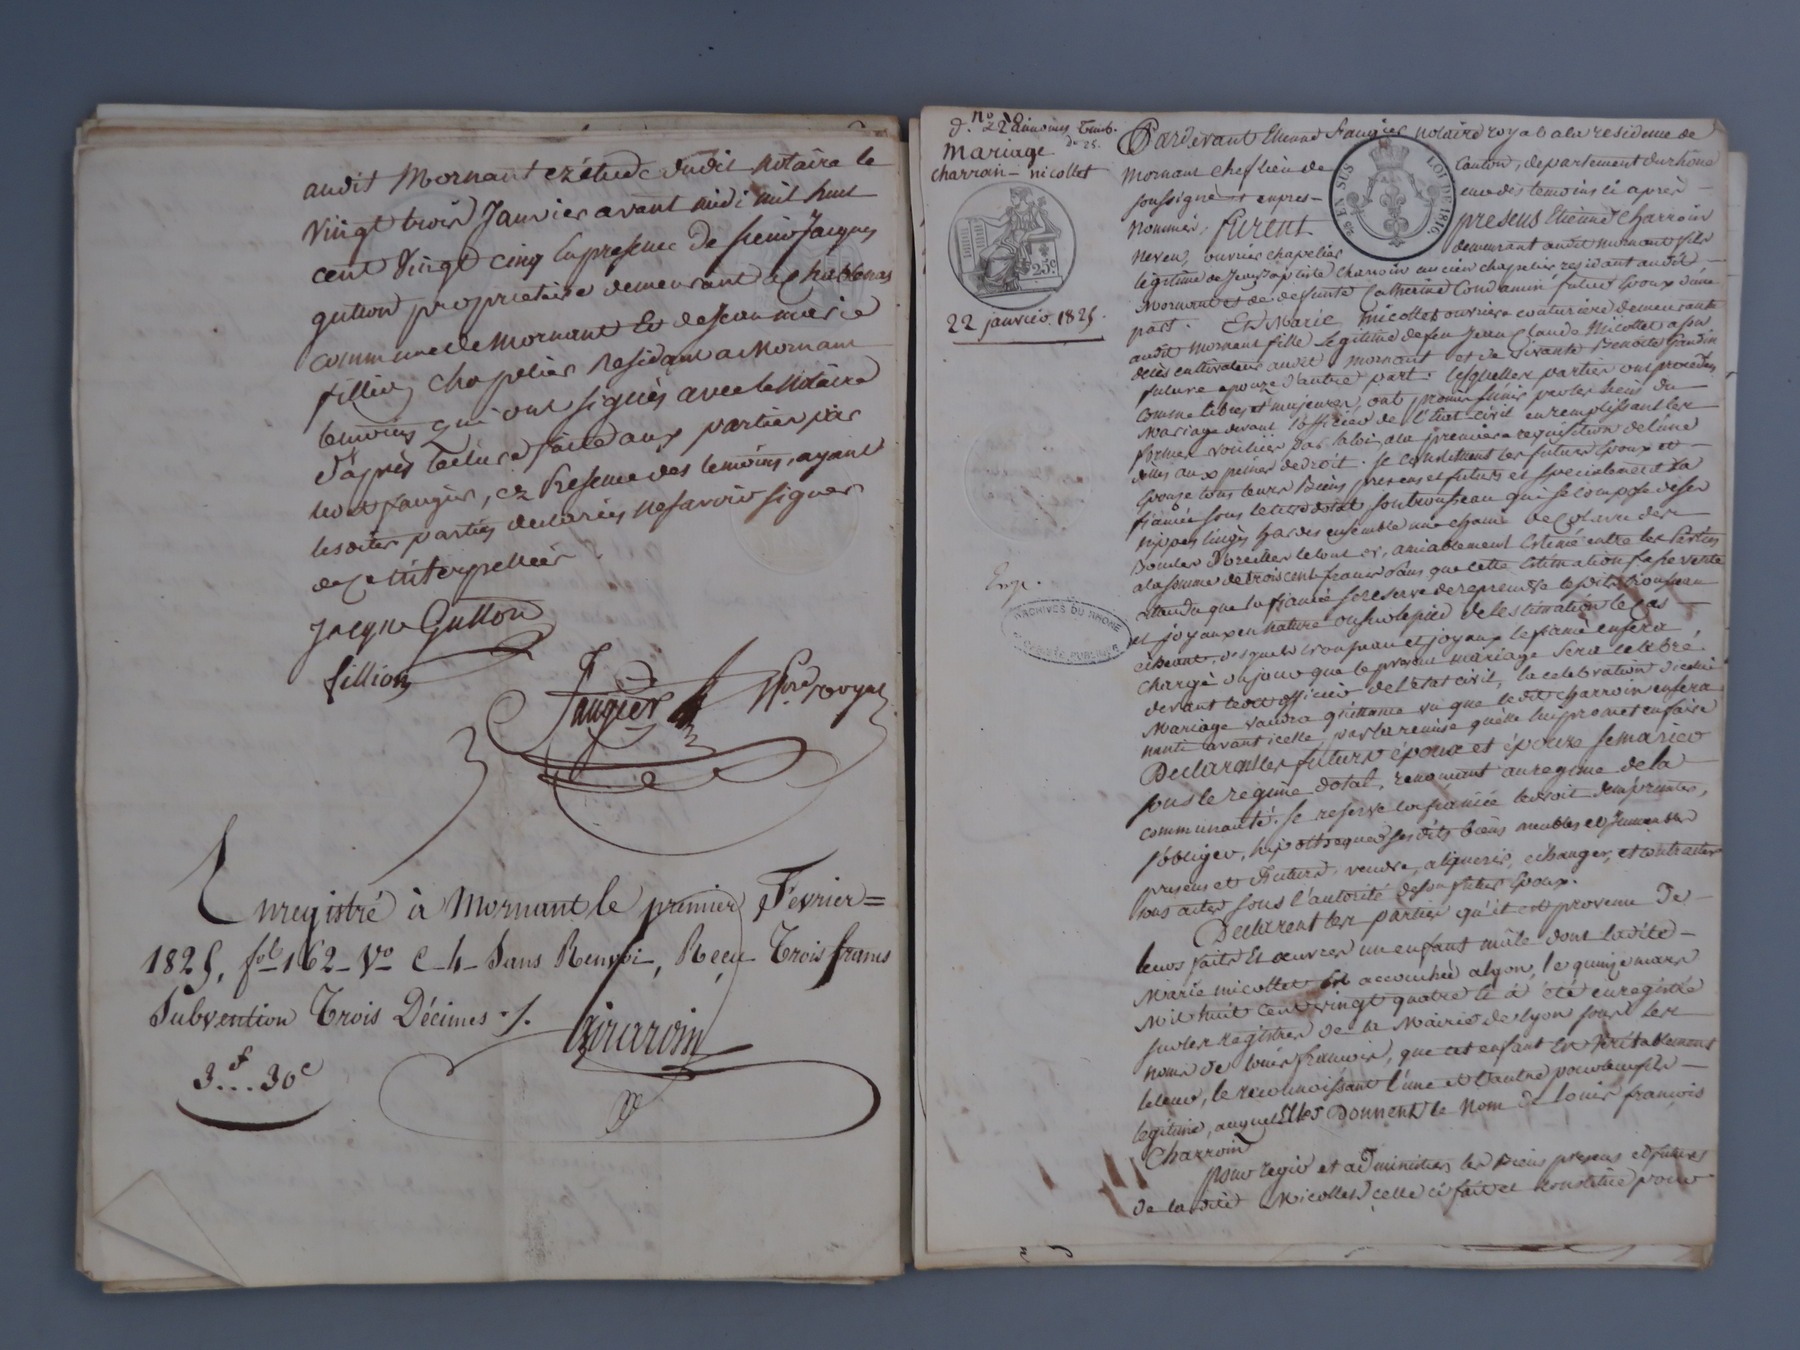 audit Mornant ez étude dudit Notaire le
vingt trois Janvier avant midi mil huit
cent vingt cinq en presence de sieurs Jacques
gutton proprietaire demeurant a
commune de Mornant et de Jean marie
fillion chapelier Residant a Mornant
temoins qui ont signés avec le Notaire
d'après lecture faite aux parties par
led faugier, ez presence des temoins, ayant
lesdites parties declarées ne savoir signer
de ce interpellées
Jacque Gutton
fillion
faugier Nre. royal
Enregistré à Mornant le premier Février =
1825, fol 162 Vo C 4 Sans Renvoi, Reçu Trois francs
Subvention Trois Décimes ./.
Girardin
3f..30c
No 22
Mariage
charroin - nicollet
25 c.
22 janvier 1825.
Exp.
ARCHIVES DU RHONE
25 EN SUS
LOI DE 1816
Pardevant Etienne faugier notaire royal a la residence de
Mornant chef lieu de canton, departement du rhône
soussigné et en presence des temoins ci après
nommés, furent presens Etienne Charroin
neveu, ouvrier chapelier demeurant audit mornant fils
legitime de Jean Baptiste Charroin ancien chapelier residant audit
Mornant et de deffunte Catherine Condamin futur epoux d'une
part. Et Marie nicollet ouvriere couturiere demeurante
audit mornant fille legitime de feu Jean Claude Nicollet a son
deces cultivateur audit Mornant et de vivante Benoite
future epouze d'autre part. lesquelles parties ont procedées
comme libres et majeures, ont promis s'unir par les liens du
mariage devant l'officier de l'Etat civil en remplissant les
formes voulues par la loi a la premiere requisition de l'une
d'elles aux peines de droit. Se constituent les futurs epoux et
epouze tous leurs biens presens et futurs et specialement la
fiancée sous le titre dotal son trousseau qui se compose de ses
nippes linges hardes ensemble une chaine de col avec des
boucles d'oreilles le tout amiablement estimé entre les parties
a la somme de trois cent francs sans que cette estimation fasse vente
attendu que la fiancée se reserve de reprendre lesdits trousseau
et joyaux en nature ou sur le pied de l'estimation le cas
echeant, desquels trousseau et joyaux le fiancé en sera
chargé du jour que le present mariage sera celebré
devant ledit officier de l'etat civil, la celebration dudit
Mariage vaudra quittance vu que ledit charroin en sera
nanti avant icelle par la remise qu'elle lui promet en faire
Declarent les futurs époux et épouze se marier
sous le regime dotal, renonçant au regime de la
communauté. Se reserve la fiancée le droit d'emprunter,
s'obliger, hypothequer ses dits biens meubles et Immeubles
presens et futurs, vendre, alquerir, echanger, et contracter
tous actes sous l'autorité de son futur epoux.
Declarent les parties qu'il est provenu de
leurs faits et œuvres un enfant mâle dont ladite
Marie nicollet est accouchée a lyon, le quinze mars
mil huit cent vingt quatre et a été enregistré
sur les registres de la Mairie de lyon sous les
noms de louis françois, que cet enfant est véritablement
le leur, le reconnoissant l'une et l'autre pour leur fils
legitime, auquel Elles Donnent le nom de louis françois
Charroin
Pour regir et administrer les biens presens et futurs
de ladite Nicollet, celle ci fait et constitue pour